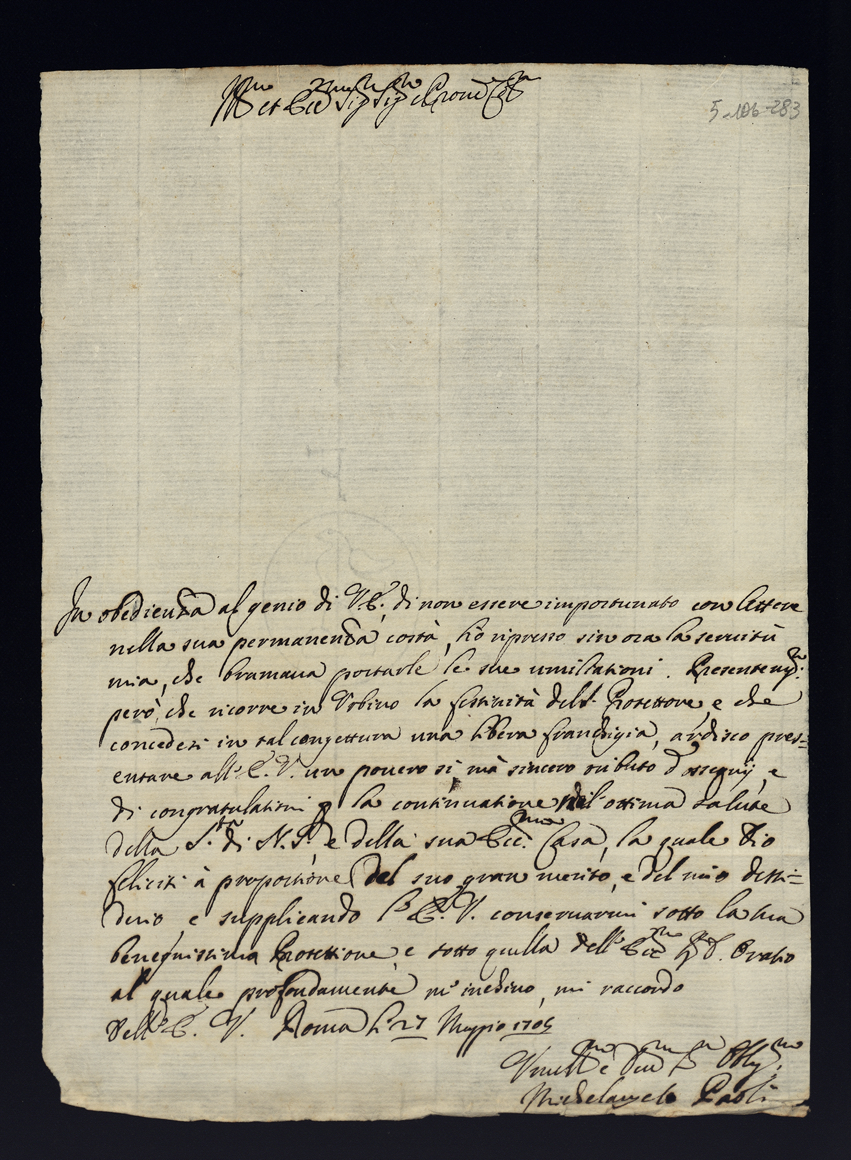 Ill.mo et Ecc.mo Sig.r Sig.r e Prone Col.mo
5-106-283
In obedienza al genio di V.E. di non essere importunato con lettere
nella sua permanenza costà, hò ripresso sin ora la servitù
mia, che bramava portarle le sue umiliationi. Presentem.te
però, che ricorre in Urbino la festività del Protettore, e che
concedesi in tal congettura una libera franchigia, ardisco pres=
entare all'E.V. un povero sì, mà sincero tributo d'ossequij, e
di congratulationi p la continuatione del ottima salute
della S.tà di N.S. e della sua Ecc.ma Casa, la quale Dio
feliciti à proportione del suo gran merito, e del mio desi=
derio, e supplicando l'E.V. conservarmi sotto la sua
benegnissima Protettione, e sotto quella dell'Ecc.mo D. Oratio
al quale profondamente m'inchino, mi raccordo
Dell'E.V. Roma li 27 Maggio 1705
Umill.mo e Ser.re Oblig.mo
Michelangelo Paoli